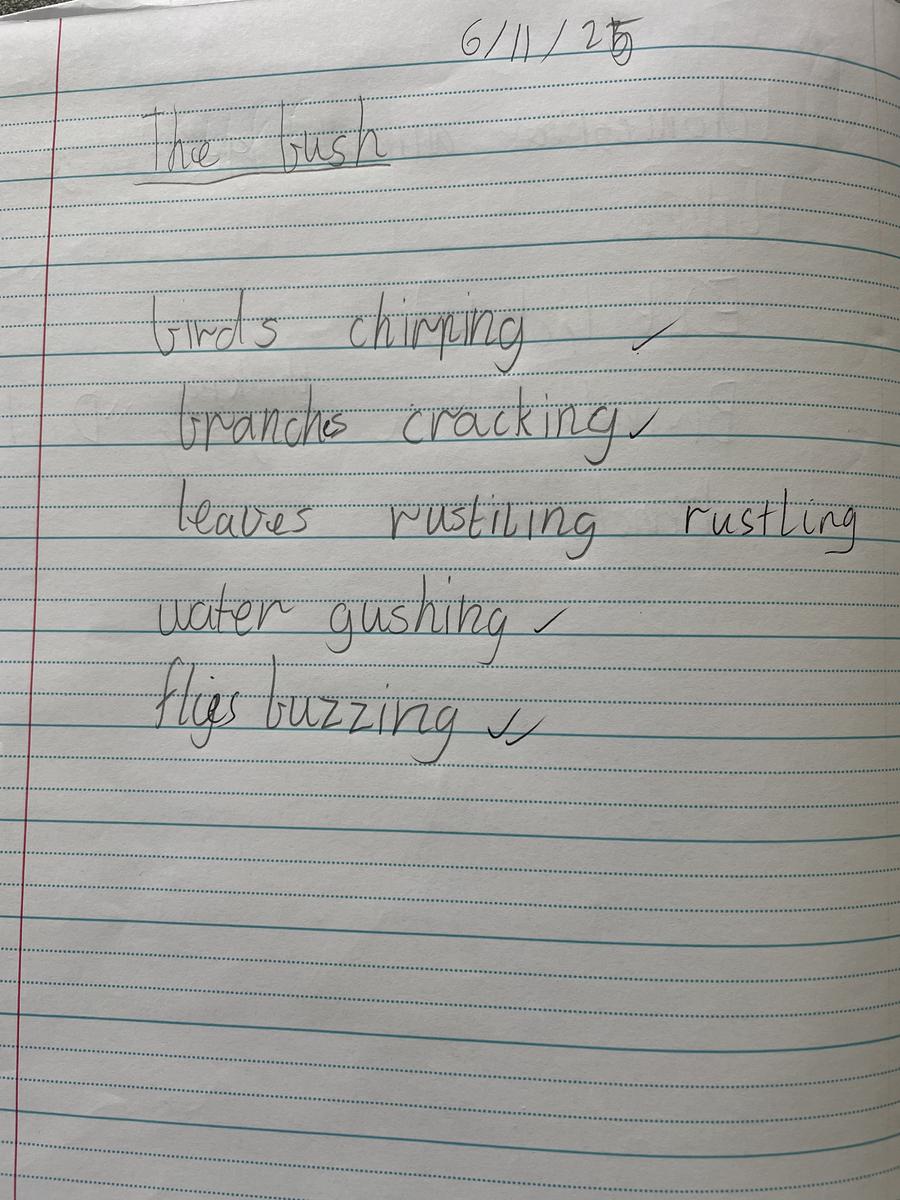 6/11/25
The bush
birds chirping ✓
branches cracking ✓
leaves rustiling rustling
water gushing ✓
flies buzzing ✓✓